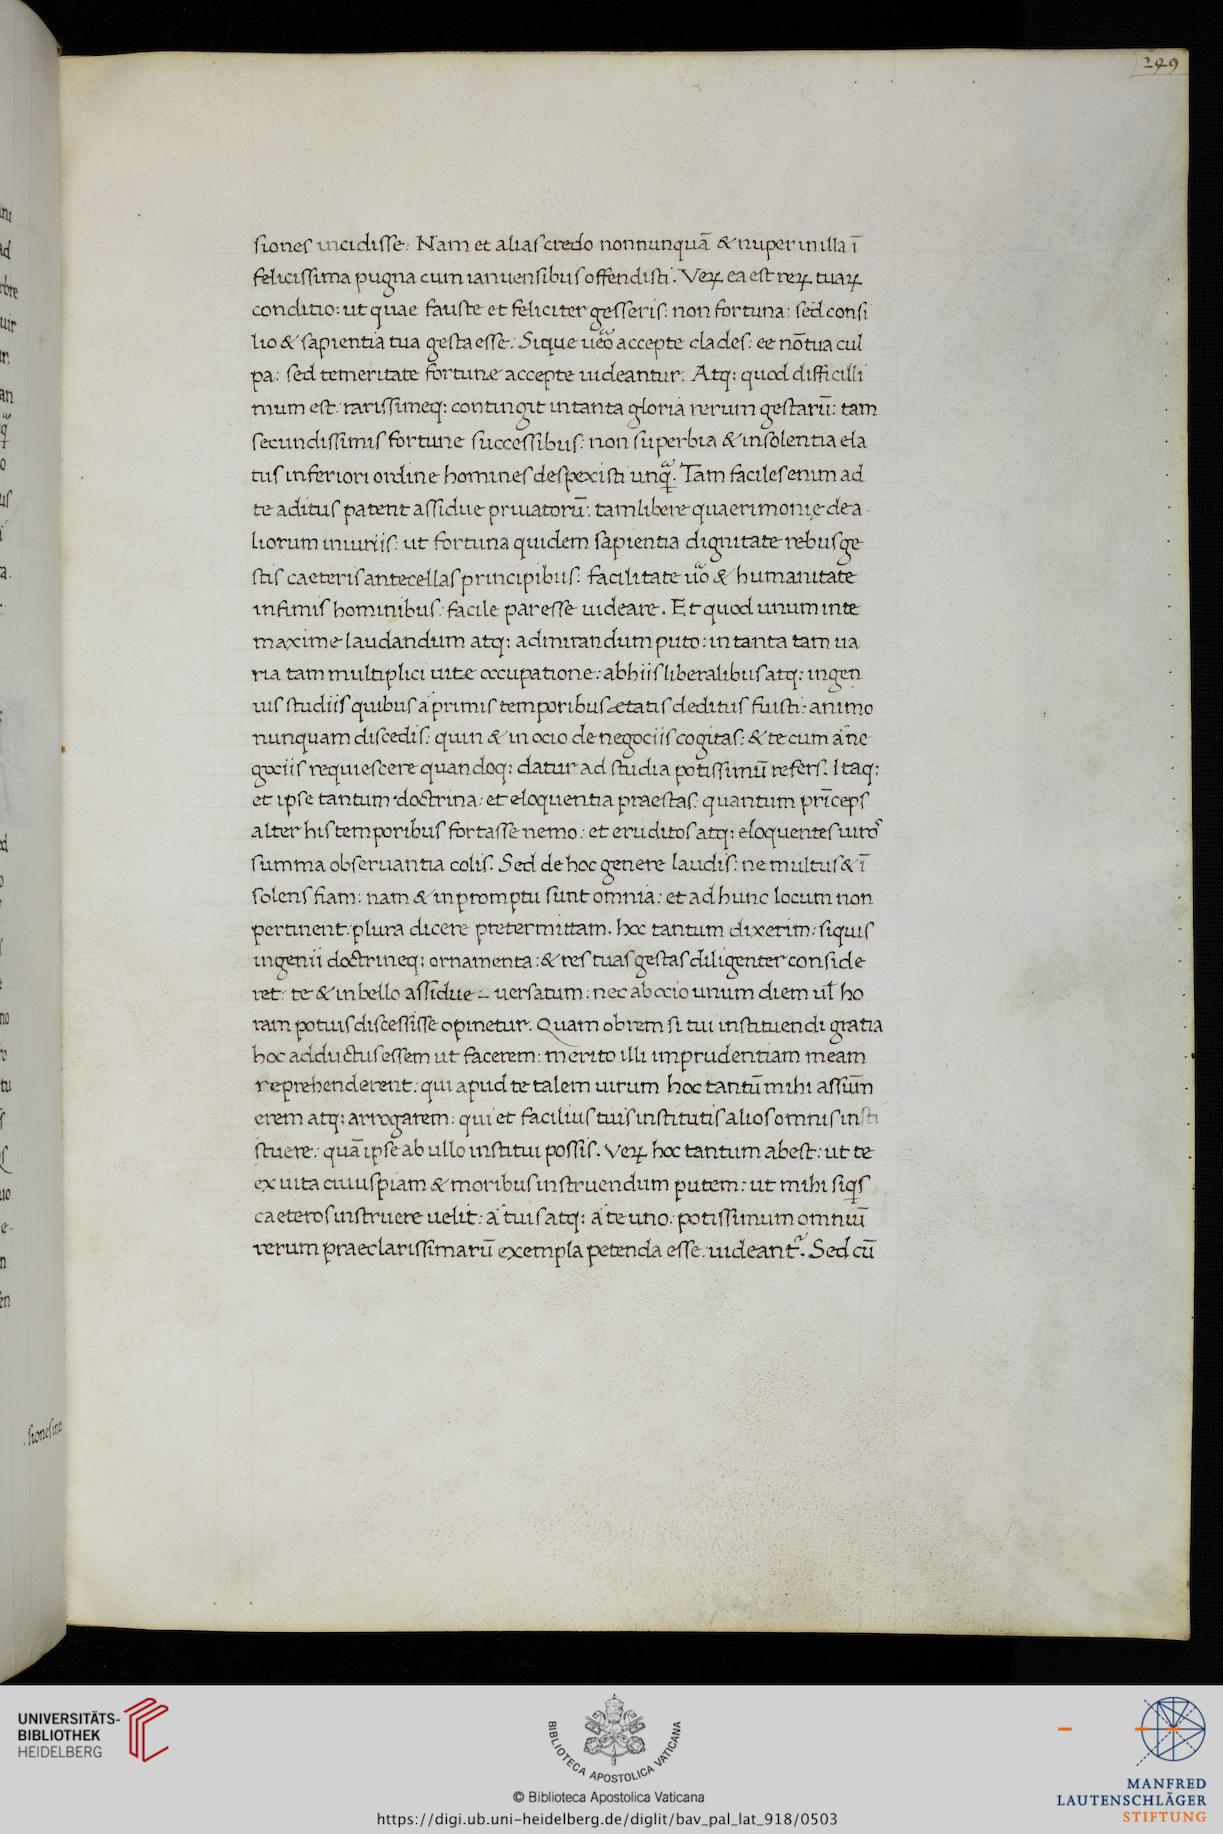 249
siones incidisse: Nam et alias credo nonnunquā & nuper in illa ī
felicissima pugna cum ianuensibus offendisti. Veꝝ ea est reꝝ tuaꝝ
conditio: ut quae fauste et feliciter gesseris: non fortuna: sed consi
lio & sapientia tua gesta esse: Sique uero accepte clades: ee nō tua cul
pa: sed temeritate fortunæ accepte uideantur. Atq: quod difficilli
mum est: rarissimeq: contingit in tanta gloria rerum gestarū: tam
secundissimis fortune successibus: non superbia & insolentia ela
tus inferiori ordine homines despexisti unqᷓ. Tam faciles enim ad
te aditus patent assidue priuatorū: tam libere quaerimonię de a-
liorum iniuriis: ut fortuna quidem sapientia dignitate rebus ge
stis caeteris antecellas principibus: facilitate uo & humanitate
infimis hominibus: facile par esse uideare. Et quod unum in te
maxime laudandum atq: admirandum puto: in tanta tam ua
ria tam multiplici uitæ occupatione: ab hiis liberalibus atq: ingen
uis studiis quibus a primis temporibus ætatis deditus fuisti: animo
nunquam discedis: quin & in ocio de negociis cogitas: & te cum a ne
gociis requiescere quandoq: datur ad studia potissimū refers. Itaq:
et ipse tantum doctrina: et eloquentia praestas: quantum prīceps
alter his temporibus fortasse nemo: et eruditos atq: eloquentes uiros
summa obseruantia colis. Sed de hoc genere laudis: ne multus & ī
solens fiam: nam & in promptu sunt omnia: et ad hunc locum non
pertinent: plura dicere pretermittam. hoc tantum dixerim: siquis
ingenii doctrineq: ornamenta: & res tuas gestas diligenter conside
ret: te & in bello assidue – uersatum: nec ab ocio unum diem ul̄ ho
ram potuis discessisse opinetur. Quam obrem si tui instituendi gratia
hoc adductus essem ut facerem: merito illi imprudentiam meam
reprehenderent: qui apud te talem uirum hoc tantū mihi assūm
erem atq: arrogarem: qui et facilius tuis institutis alios omnis insti
stuere: quā ipse ab ullo institui possis. Veꝝ hoc tantum abest: ut te
ex uita cuiuspiam & moribus instruendum putem: ut mihi siqs
caeteros instruere uelit: a tuis atq: a te uno: potissimum omniū
rerum praeclarissimarū exempla petenda esse uideantr. Sed cū
siones inci
UNIVERSITÄTS-
BIBLIOTHEK
HEIDELBERG
BIBLIOTECA APOSTOLICA VATICANA
© Biblioteca Apostolica Vaticana
https://digi.ub.uni-heidelberg.de/diglit/bav_pal_lat_918/0503
MANFRED
LAUTENSCHLÄGER
STIFTUNG